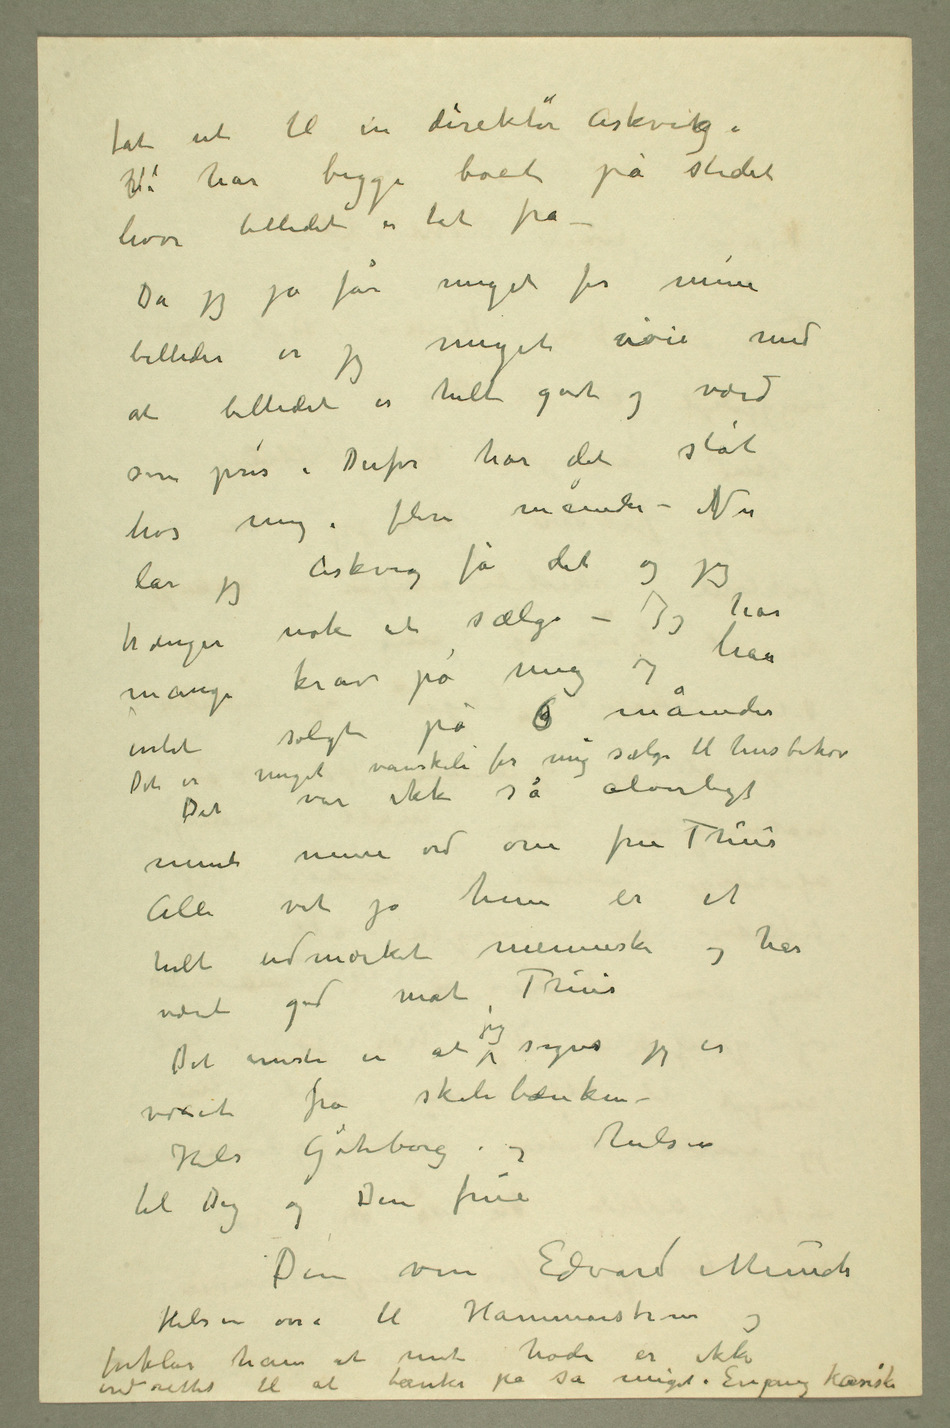 tat ut til en direktör Askvig.
Vi har begge boet på stedet
hvor billedet er tat fra –
Da jeg jo får meget for mine
billeder er jeg meget nöie med
at billedet er helt godt og værd
sin pris. Derfor har det ståt
hos mig i flere måneder – Nu
lar jeg Askvig få det og jeg
trænger nok at sælge – Jeg har
mange krav på mig og har
intet solgt på 6 måneder
Det er meget vanskeli for mig sælge til husbehov
Det var ikke så alvorligt
mente mine ord om fru Thiis
Alle vet jo hun er et
helt udmærket menneske og har
været god mot Thiis
Det eneste er at jeg synes jeg er
voxet fra skolebænken –
Hils Göteborg. og hilsen
til Dig og Din frue
Din ven Edvard Munch
Hilsen osså til Hammarström og
forklar ham at mit hode er ikke
indrettet til at tænke på så meget. Engang kanske